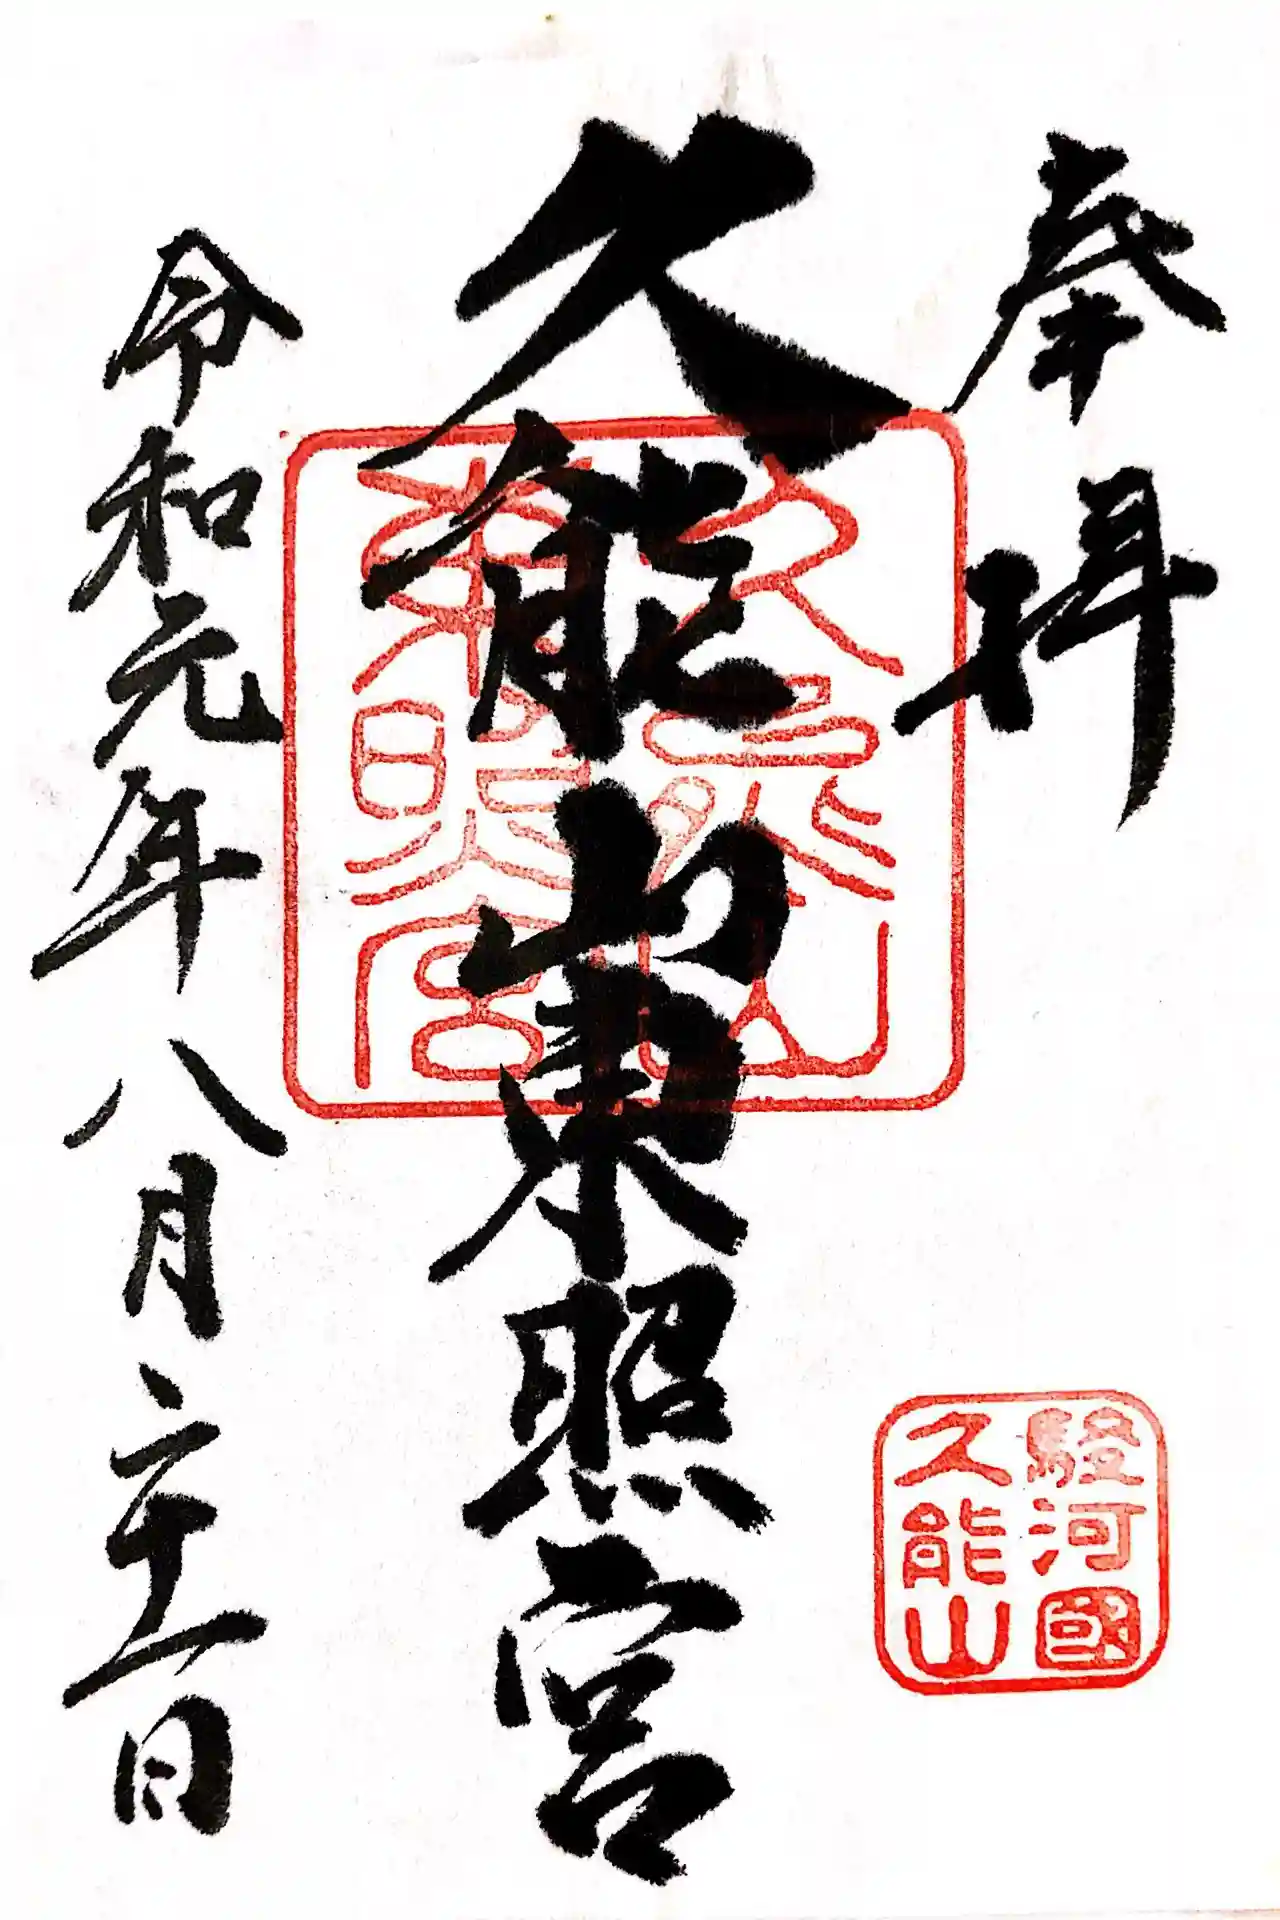 奉拝
駿河國
久能山
久能山東照宮
久能山
東照宮
令和元年八月二十一日